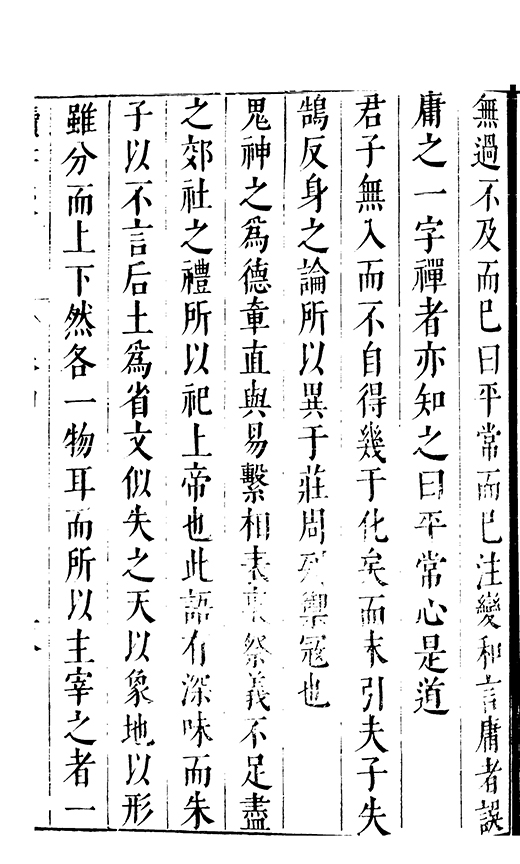 無過不及而已曰平常而已注變和言庸者誤
庸之一字禪者亦知之曰平常心是道
君子無入而不自得幾于化矣而末引夫子失
鵠反身之論所以異于莊周列禦冠也
鬼神之為德章直與易繫相表裏祭義不足盡
之郊社之禮所以祀上帝也此語有深味而朱
子以不言后土為省文似失之天以象地以形
雖分而上下然各一物耳而所以主宰之者一